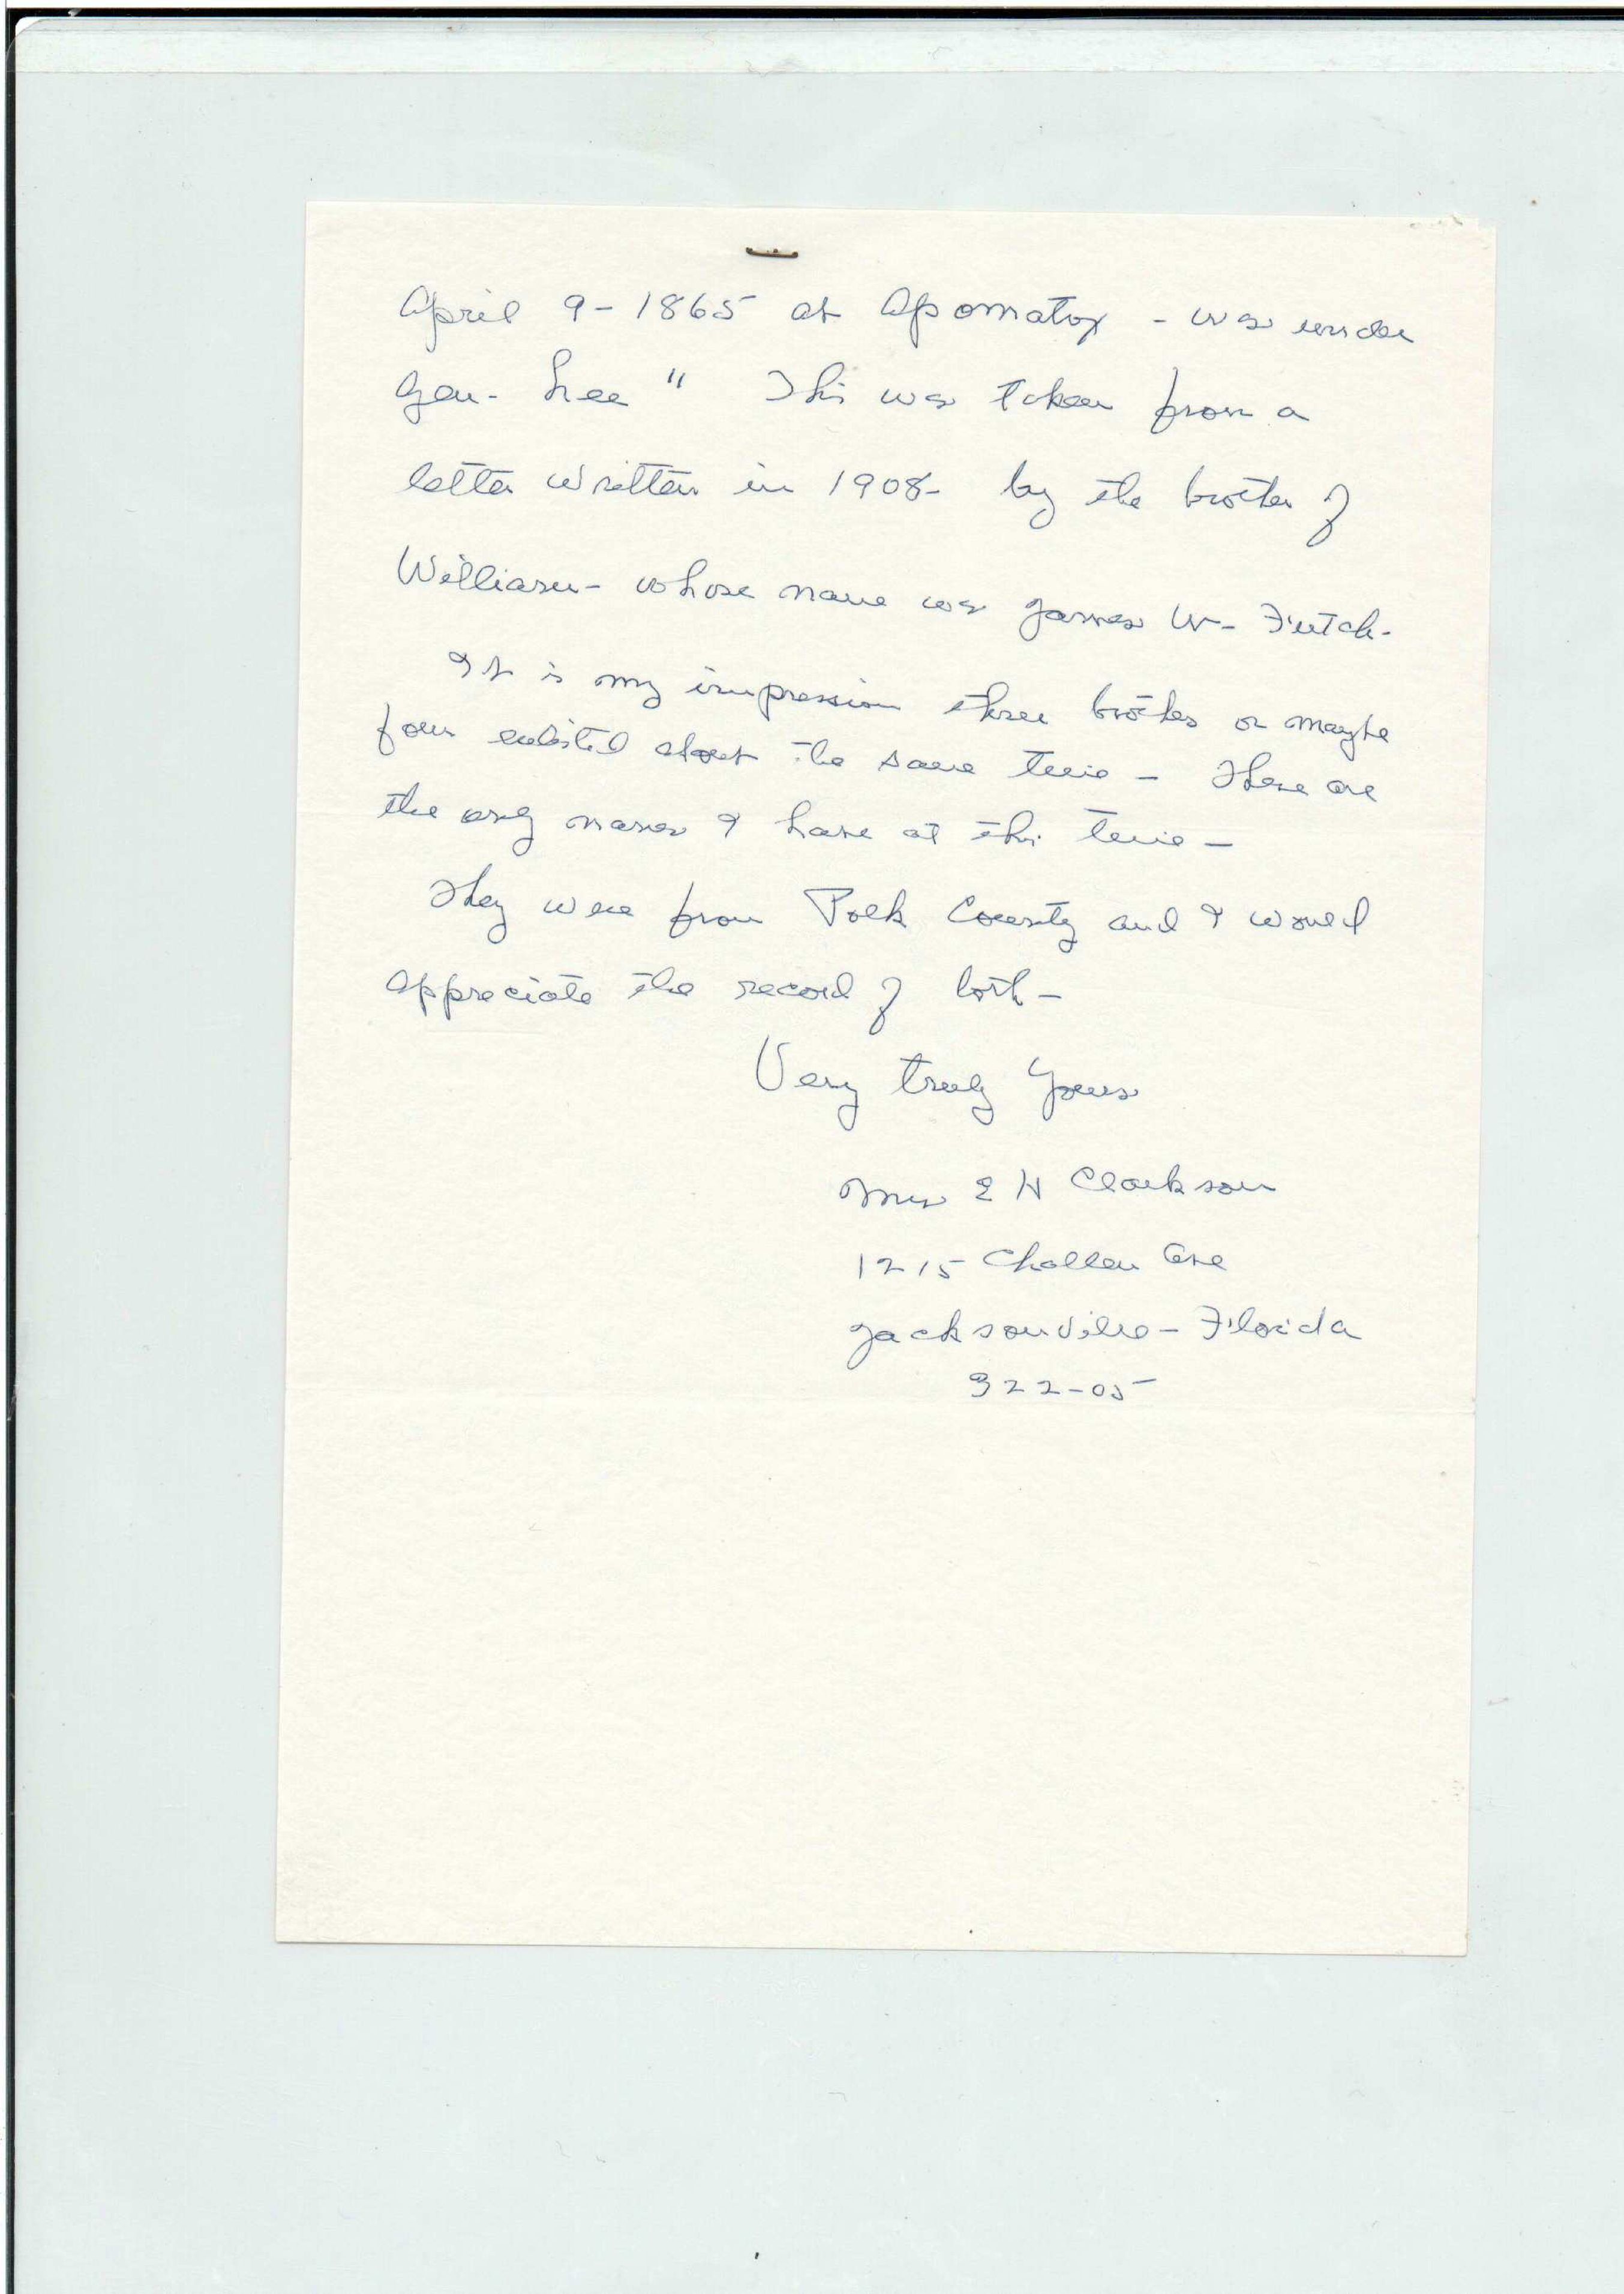 April 9-1865 at Apomatox - was under
Gen- Lee" This was taken from a
letter written in 1908- by the brother of
William- whose name was James W- Futch-
It is my impression three brothers or maybe
four enlisted about the same time - These are
the only names I have at this time -
They were from Polk County and I would
appreciate the record of both -
Very truly yours
Mrs E H Clarkson
1215 Challen Ave
Jacksonville - Florida
322-05